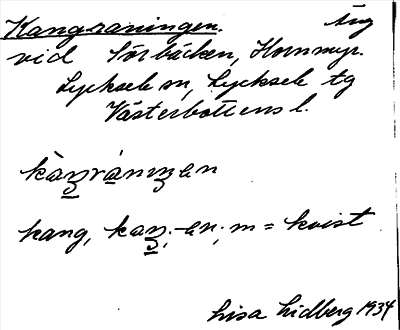 Kangraningen. äng
vid Sörbäcken, Kornmyr.
Lycksele sn, Lycksele tg
Västerbottens l.
kàŋrànıŋen
kang, kaŋ, -en, m = kvist
Lisa Lidberg 1934